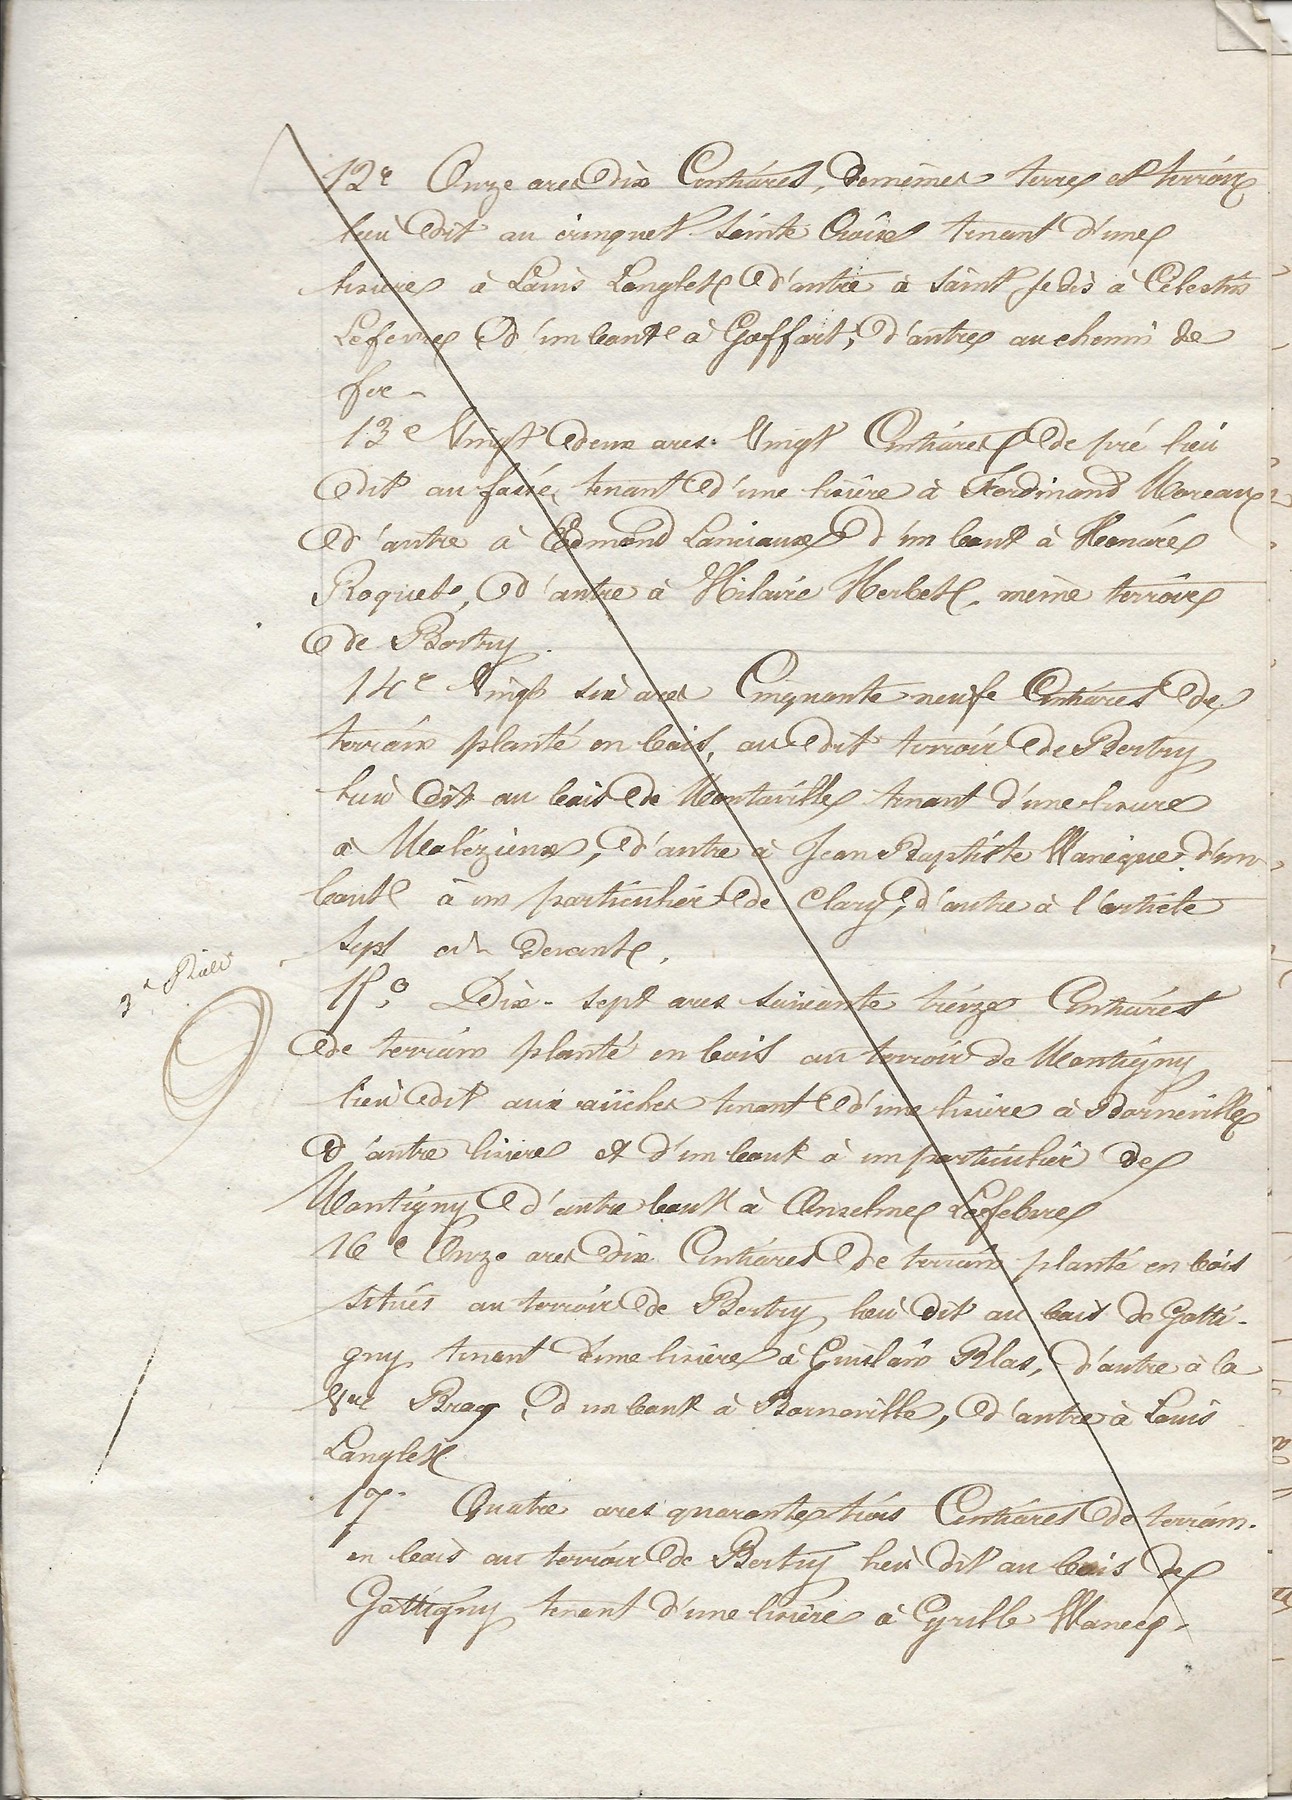 12e Onze ares Dix Centiares, de mêmes terre et terroir
lieu dit au crinquet Sainte Croise tenant d'une
lisiere à Louis Langlet d'autre à Saint je dis à Célestin
Lefevre d'un bout à Goffart, d'autre au chemin de
fer -
13e Vingt deux ares Vingt Centiares de pré lieu
dit au fossé, tenant d'une lisière à Ferdinand Moreaux
d'autre à Edmond Lanciaux d'un bout à Honoré
Roquet, d'autre à Hilaire Herbet, même terroir
de Bertry.
14e Vingt six ares Cinquante neufe Centiares de
terrain planté en bois, au dit terroir de Bertry
lieu dit au bois de Montaville tenant d'une lisiere
à Malézieux, d'autre à Jean Baptiste Wanéque d'un
bout à un particulier de Clary, d'autre à l'article
sept ci devant.
3e Rôle
15o Dix-sept ares soixante treize Centiares
de terrain planté en bois au terroir de Montigny
lieu dit aux tenant d'une lisiere à Borneville
d'autre lisiere et d'un bout à un particulier de
Montigny d'autre bout à Anselme Lefebvre
16e Onze ares Dix Centiares de terrain planté en bois
situés au terroir de Bertry lieu dit au bois de Gatti-
gny tenant d'une lisière à Guislain Plas, d'autre à la
Vve Bracq, d'un bout à Borneville, d'autre à Louis
Langlet
17. Quatre ares quarante trois Centiares de terrain
en bois au terroir de Bertry lieu dit au bois de
Gattigny tenant d'une lisière à Cyrille Wanecq-